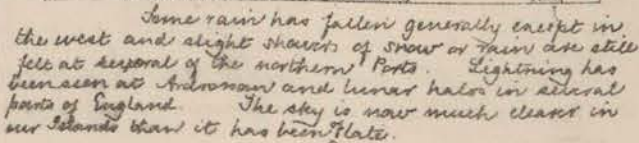 Some rain has fallen generally except in
the west and slight showers of snow or rain are still
felt at several of the northern Ports. Lightning has
been seen at Ardrossan and lunar halos in several
parts of England. The sky is now much clearer in
our Islands than it has been of late.